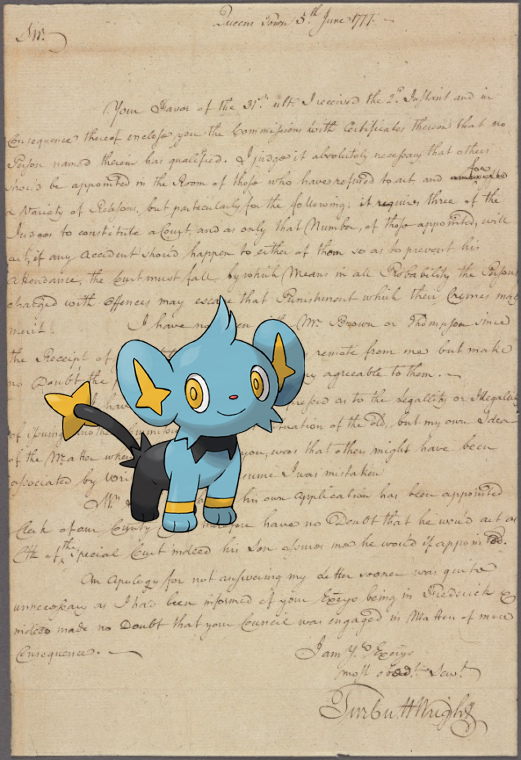 Queens Town 5th June 1777. —
Sir
Your Favor of the 31st ulto I received the 2d Instant and in
Consequence thereof enclose you the Commissions with Certificates thereon that no
Person named therein has qualified. I judge it absolutely necessary that others
shou'd be appointed in the Room of those who have refused to act and for
a Variety of Reasons, but particularly for the following; it requires three of the
Judges to constitute a Court, and as only that Number, of those appointed, will
act, if any Accident shou'd happen to either of them so as to prevent his
Attendance, the Court must fall by which Means in all Probability the Persons
charged with Offences may escape that Punishment which their Crimes may
merit. I have no Mr. Brown or Thompson since
the Receipt of remote from me but make
no Doubt the agreeable to them. —
have as to the Legality or Illegality
of issuing another of the old, but my own Idea
of the Matter when you, was that others might have been
associated by I was mistaken
Mr. his own Application has been appointed
Clerk of our County have no Doubt that he wou'd act as
Clk of the Special Court indeed his Son assures me he would if appointed.
An Apology for not answering my Letter sooner was quite
unnecessary as I had been informed of your Excys being in Frederick &
indeed made no Doubt that your Council was engaged in Matters of more
Consequence. —
I am Yr. Excys
most obedt. Servt.
Turbutt Wright